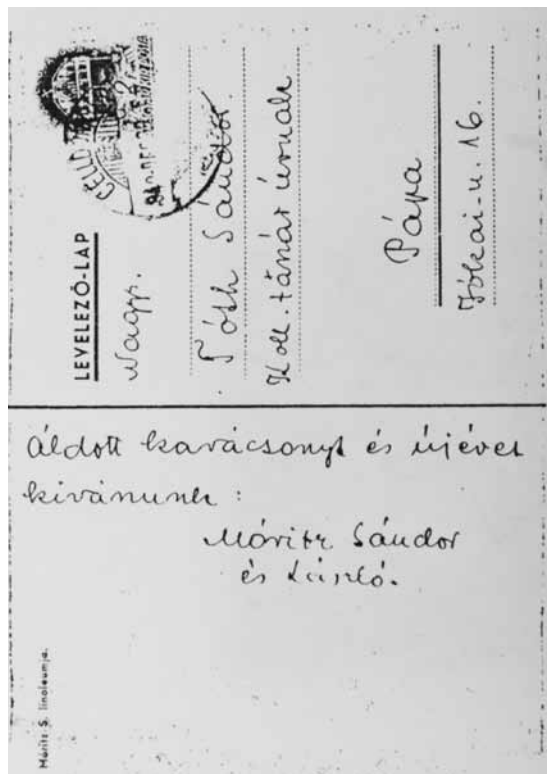 LEVELEZŐ-LAP
Nagys.
Tóth Sándor
Koll. tanár úrnak
Pápa
Jókai-u. 16.
CELLD
Áldott karácsonyt és újévet
kívánunk:
Móritz Sándor
és László.
Móritz S. linoleumja.